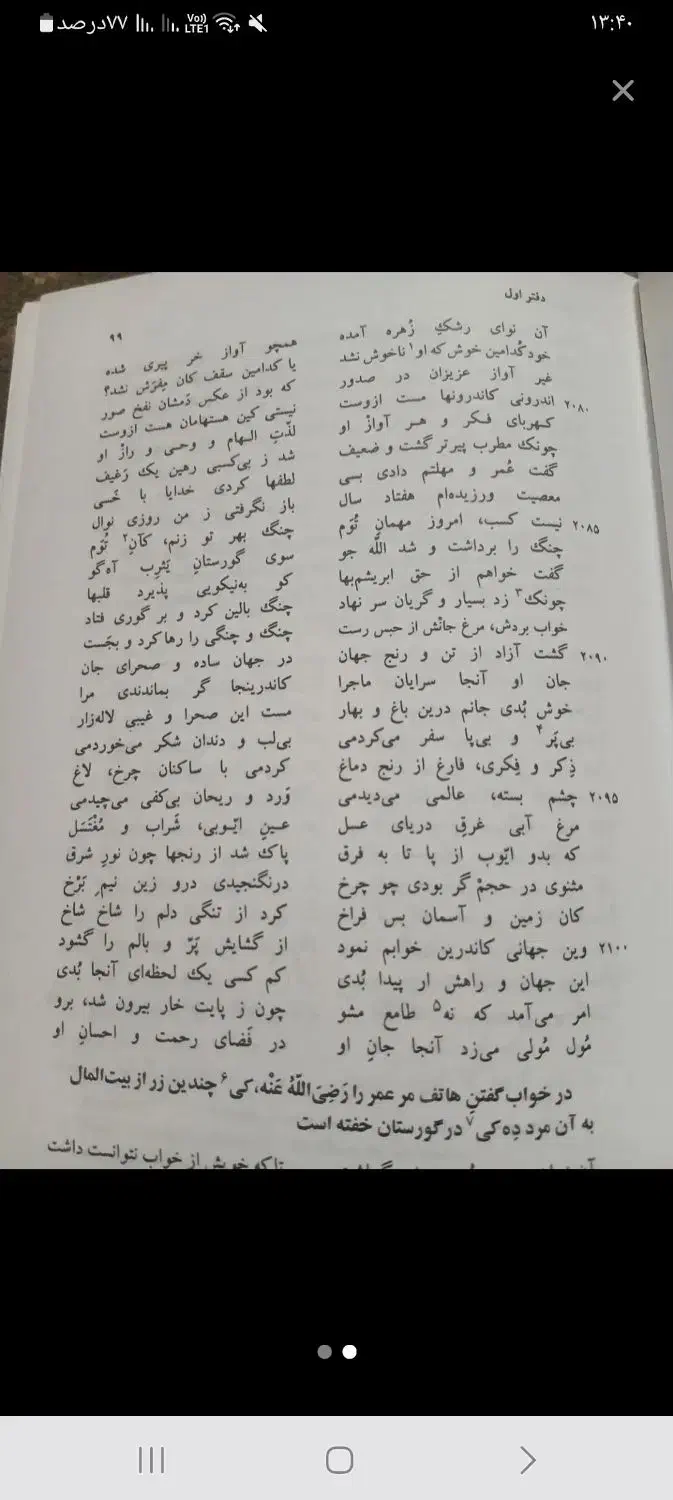 ۱۳:۴۰
Vo)) LTE1
۷۷درصد
دفتر اول
۹۹
آن نوای رشکِ زُهره آمده همچو آواز خر پیری شده
خود کُدامین خوش که او۱ ناخوش نشد یا کدامین سقف کان مِفْرَش نشد؟
غیر آواز عزیزان در صدور که بود از عکس دَمشان نفخ صور
۲۰۸۰ اندرونی کاندرونها مست ازوست نیستی کین هستهامان هست ازوست
کهربای فکر و هر آوازْ او لذّتِ الهام و وحی و رازْ او
چونک مطرب پیرتر گشت و ضعیف شد ز بی‌کسبی رهین یک رَغیف
گفت عُمر و مهلتم دادی بسی لطفها کردی خدایا با خَسی
معصیت ورزیده‌ام هفتاد سال باز نگرفتی ز من روزی نوال
۲۰۸۵ نیست کسب، امروز مهمانِ تُوَم چنگ بهر تو زنم، کآنِ۲ تُوَم
چنگ را برداشت و شد اللّه جو سوی گورستانِ یَثرِب آه‌گو
گفت خواهم از حق ابریشم‌بها کو به‌نیکویی پذیرد قلبها
چونک۳ زد بسیار و گریان سر نهاد چنگ بالین کرد و بر گوری فتاد
خواب بردش، مرغ جانْش از حبس رست چنگ و چنگی را رها کرد و بجَست
۲۰۹۰ گشت آزاد از تن و رنج جهان در جهان ساده و صحرای جان
جان او آنجا سرایان ماجرا کاندرینجا گر بماندندی مرا
خوش بُدی جانم درین باغ و بهار مست این صحرا و غیبی لاله‌زار
بی‌پَر۴ و بی‌پا سفر می‌کردمی بی‌لب و دندان شکر می‌خوردمی
ذِکر و فِکری، فارغ از رنج دماغ کردمی با ساکنان چرخ، لاغ
۲۰۹۵ چشم بسته، عالمی می‌دیدمی وَرد و ریحان بی‌کفی می‌چیدمی
مرغِ آبی غرقِ دریای عسل عینِ ایّوبی، شَراب و مُغْتَسَل
که بدو ایّوب از پا تا به فرق پاک شد از رنجها چون نورِ شرق
مثنوی در حجمْ گر بودی چو چرخ درنگنجیدی درو زین نیم بَرْخ
کان زمین و آسمان بس فراخ کرد از تنگی دلم را شاخ شاخ
۲۱۰۰ وین جهانی کاندرین خوابم نمود از گشایش پَرّ و بالم را گشود
این جهان و راهش ار پیدا بُدی کم کسی یک لحظه‌ای آنجا بُدی
امر می‌آمد که نه۵ طامع مشو چون ز پایت خار بیرون شد، برو
مُول مُولی می‌زد آنجا جانِ او در فَضای رحمت و احسانِ او
در خواب گفتنِ هاتف مر عمر را رَضِیَ اللّهُ عَنْه، کی۶ چندین زر از بیت‌المال
به آن مرد دِه کی۷ در گورستان خفته است
تا که خویش از خواب نتوانست داشت